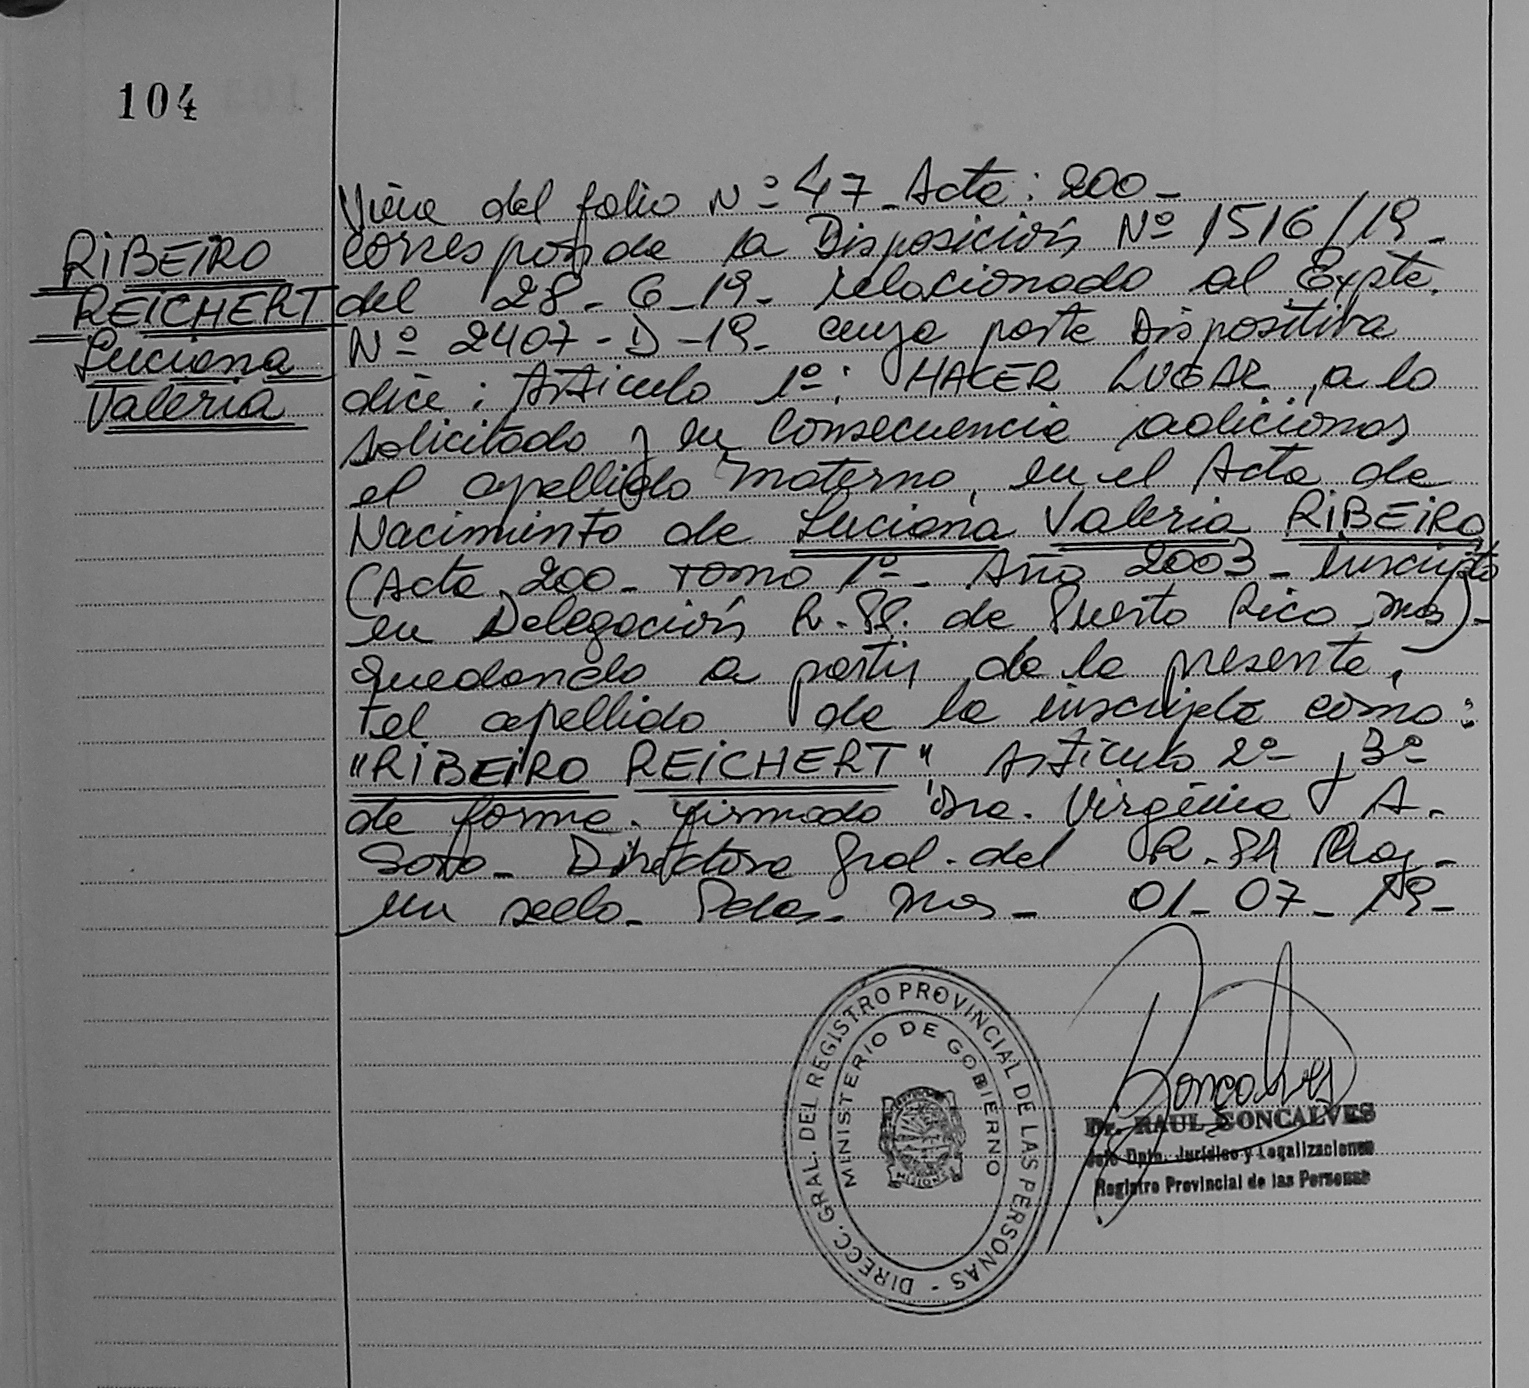 104
RIBEIRO
REICHERT
Luciana
Valeria
Viene del folio Nº 47 - Acta: 200 -
corresponde la Disposición Nº 1516/19 -
del 28 - 6 - 19 - relacionado al Expte.
Nº 2407 - D - 19 - cuya parte Dispositiva
dice: Artículo 1º: HACER LUGAR, a lo
solicitado y en Consecuencia adicionar
el apellido materno, en el Acta de
Nacimiento de Luciana Valeria RIBEIRO
(Acta 200 - Tomo 1º - Año 2003 - Inscripta
en Delegación R. PP. de Puerto Rico, Mns) -
quedando a partir de la presente,
el apellido de la inscripta como:
"RIBEIRO REICHERT" Artículo 2º y 3º
de forma. Firmado Dra. Virginia A.
Directora Gral. del R.
un sello - Pdas - Mns - 01 - 07 - 19 -
DIRECC. GRAL. DEL REGISTRO PROVINCIAL DE LAS PERSONAS -
MINISTERIO DE GOBIERNO
MISIONES
Goncalves
Dr. RAUL GONCALVES
Jefe Dpto. Jurídico y Legalizaciones
Registro Provincial de las Personas